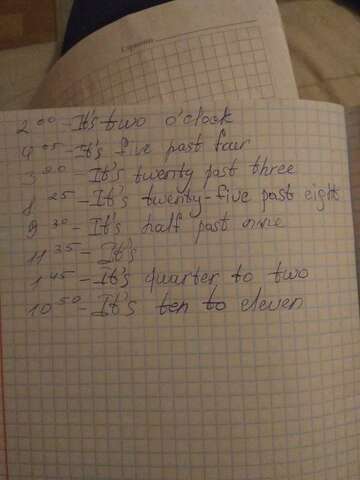 2⁰⁰ - It's two o'clock
4⁰⁵ - It's five past four
3²⁰ - It's twenty past three
8²⁵ - It's twenty-five past eight
9³⁰ - It's half past nine
11³⁵ - It's
1⁴⁵ - It's quarter to two
10⁵⁰ - It's ten to eleven